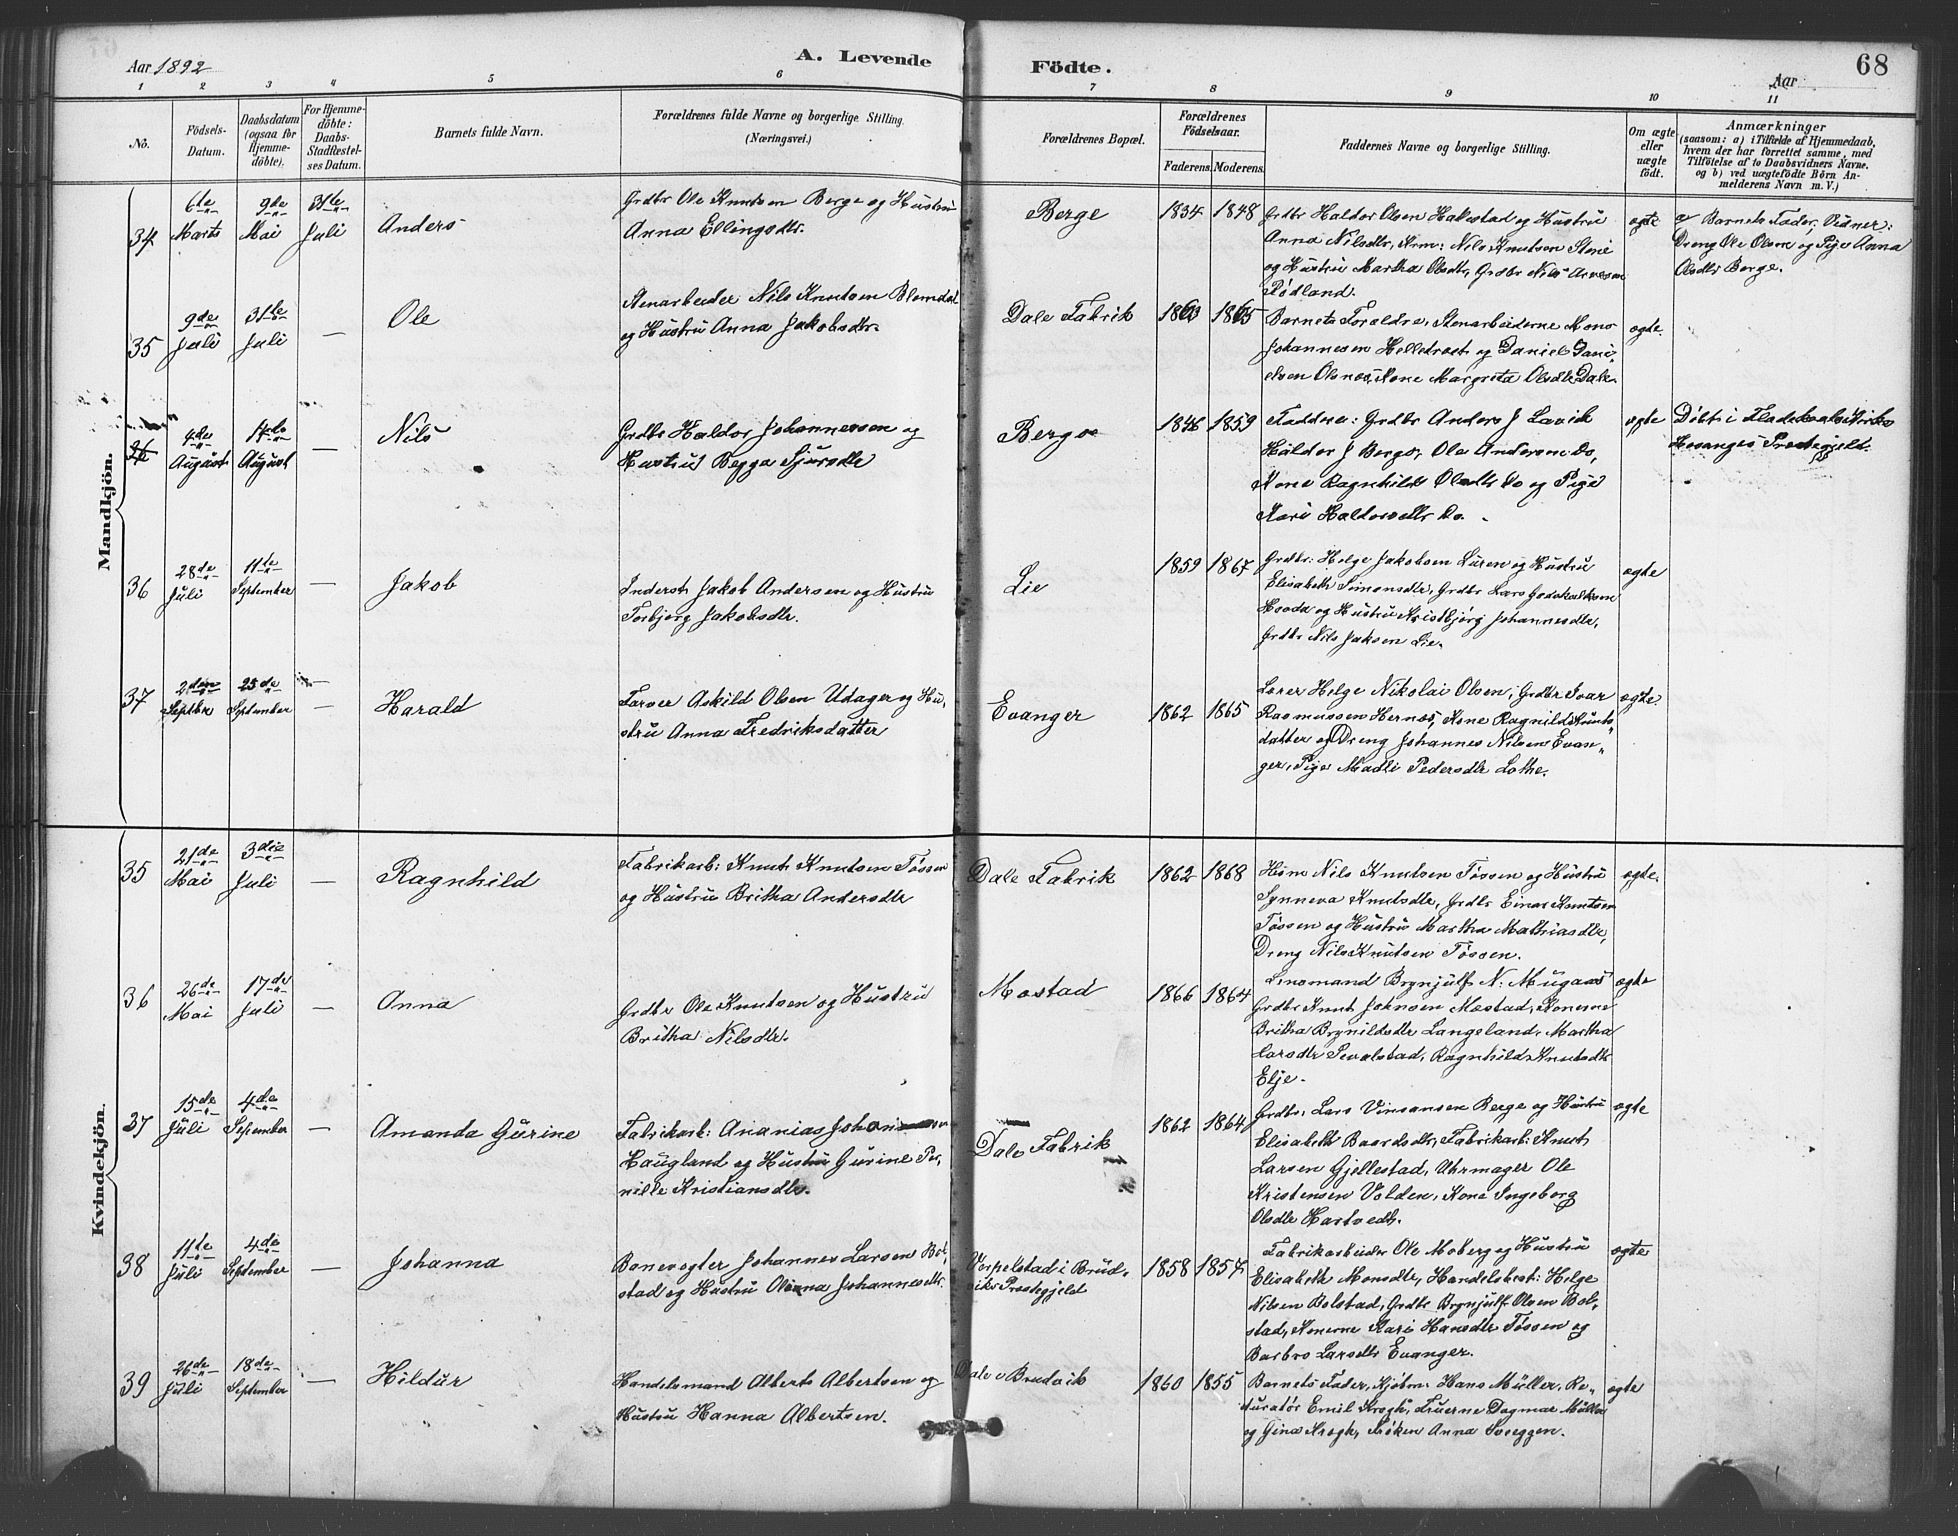 Aar 1892
A. Levende Födte.
Aar
68
1 2 3 4 5 6 7 8 9 10 11
No.
Födsels-Datum.
Daabsdatum (ogsaa for Hjemme-döbte).
For Hjemme-döbte: Daabs-Stadfæstelses Datum.
Barnets fulde Navn.
Forældrenes fulde Navne og borgerlige Stilling. (Næringsvei.)
Forældrenes Bopæl.
Forældrenes Födselsaar.
Faderens. Moderens.
Faddernes Navne og borgerlige Stilling.
Om ægte eller uægte födt.
Anmærkninger
(saasom: a) i Tilfælde af Hjemmedaab, hvem der har forrettet samme, med Tilföielse af to Daabsvidners Navne. og b) ved uægtefödte Börn Anmelderens Navn m. V.)
Mandkjön.
34
6te Marts
9de Mai
31te Juli
Anders
Grdbr Ole Knutsen Berge og Hustru
Anna Ellingsdtr.
Berge
1834 1848
Grdbr Haldor Olsen Hakestad og Hustru
Anna Nilsdtr, Nils Knutsen
og Hustru Martha Olsdtr, Grdbr Nils
Rødland.
ægte
a Barnets Fader, Vidner:
Dreng Ole Olsen og Pige Anna
Olsdtr Berge.
35
9de Juli
31te Juli
—
Ole
Stenarbeider Nils Knutsen Blomdal
og Hustru Anna Jakobsdtr.
Dale Fabrik
1865
Barnets Forældre, Stenarbeiderne Mons
Johannesen Helletvæt og Daniel Dani-
elsen Olsnæs, Kone Margreta Olsdtr Dale.
ægte.
4de August
14de August
—
Nils
Grdbr Haldor Johannessen og
Hustru Begga Sjursdtr
Berge
1846 1859
Faddere: Grdbr Anders J Lavik
Haldor J Berge, Ole Andersen Do,
Kone Ragnhild Olsdtr Do og Pige
Kari Haldorsdtr Do.
ægte
Døbt i
Hosanger Præstegjeld.
36
28de Juli
11te September
—
Jakob
Inderst Jakob Andersen og Hustru
Torbjørg Jakobsdtr.
Lie
1859 1867
Grdbr: Helge Jakobsen Luren og Hustru
Elisabeth Simonsdtr, Grdbr Lars Godskalksen
og Hustru Kristbjørg Johannesdtr,
Grdbr Nils Jaksen Lie.
ægte
37
2den Septbr
25de September
—
—
Harald
Farver Askild Olsen Udager og Hu-
stru Anna Fredriksdatter
Evanger
1862 1865
Lærer Helge Nikolai Olsen, Grdbr Ivar
Rasmussen Hernes, Kone Ragnild Knuts-
datter og Dreng Johannes Nilsen Evan-
ger, Pige Madli Pedersdtr Lothe.
ægte.
Kvindekjön.
35
21de Mai
3die Juli
—
Ragnhild
Fabrikarb: Knut Knutsen Tøssen
og Hustru Britha Andersdtr
Dale Fabrik
1862 1868
Husm Nils Knutsen Tøssen og Hustru
Synneva Knutsdtr, Grdbr Einar Knutsen
Tøssen og Hustru Martha Mathiasdtr,
Dreng Nils Knutsen Tøssen.
ægte.
36
26de Mai
17de Juli
—
Anna
Grdbr Ole Knutsen og Hustru
Britha Nilsdtr.
Mostad
1866 1864
Lensmand Brynjulf N. Mugaas
Grdbr Knut Johnsen Mostad, Konerne
Britha Brynildsdtr Langeland, Martha
Larsdtr, Ragnhild Knutsdtr
Elje.
ægte
37
15de Juli
4de September
—
Amanda Gurine
Fabrikarb: Ananias Johan
Haugland og Hustru Gurine Per-
nille Kristiansdtr.
Dale Fabrik
1862 1864
Grdbr, Lars Vinsansen Berge og Hustru
Elisabeth Baardsdtr, Fabrikarb: Knut
Larsen Gjellestad, Uhrmager Ole
Kristensen Volden, Kone Ingeborg
Olsdtr Hartvedt.
ægte
38
11te Juli
4de September
—
Johanna
Banevogter Johannes Larsen Bol-
stad og Hustru Oliana Johannesdtr.
Vorpelstad i Brud-
viks Præstegjeld
1858 1857
Fabrikarbeider Ole Moberg og Hustru
Elisabeth Monsdtr, Handelsbest: Helge
Nilsen Bolstad, Grdbr Brynjulf Olsen Bol-
stad, Konerne Kari Hansdtr Tøssen og
Barbro Larsdtr Evanger.
ægte
39
26de Juli
18de September
—
Hildur
Handelsmand Albert Albertsen og
Hustru Hanna Albertsen.
Dale i Brudvik
1860 1855
Barnets Fader, Kjøbm: Hans Müller, Re-
Emil Krogh, Fruerne Dagmar Müller
og Gina Krogh, Frøken Anna Sveggen.
ægte